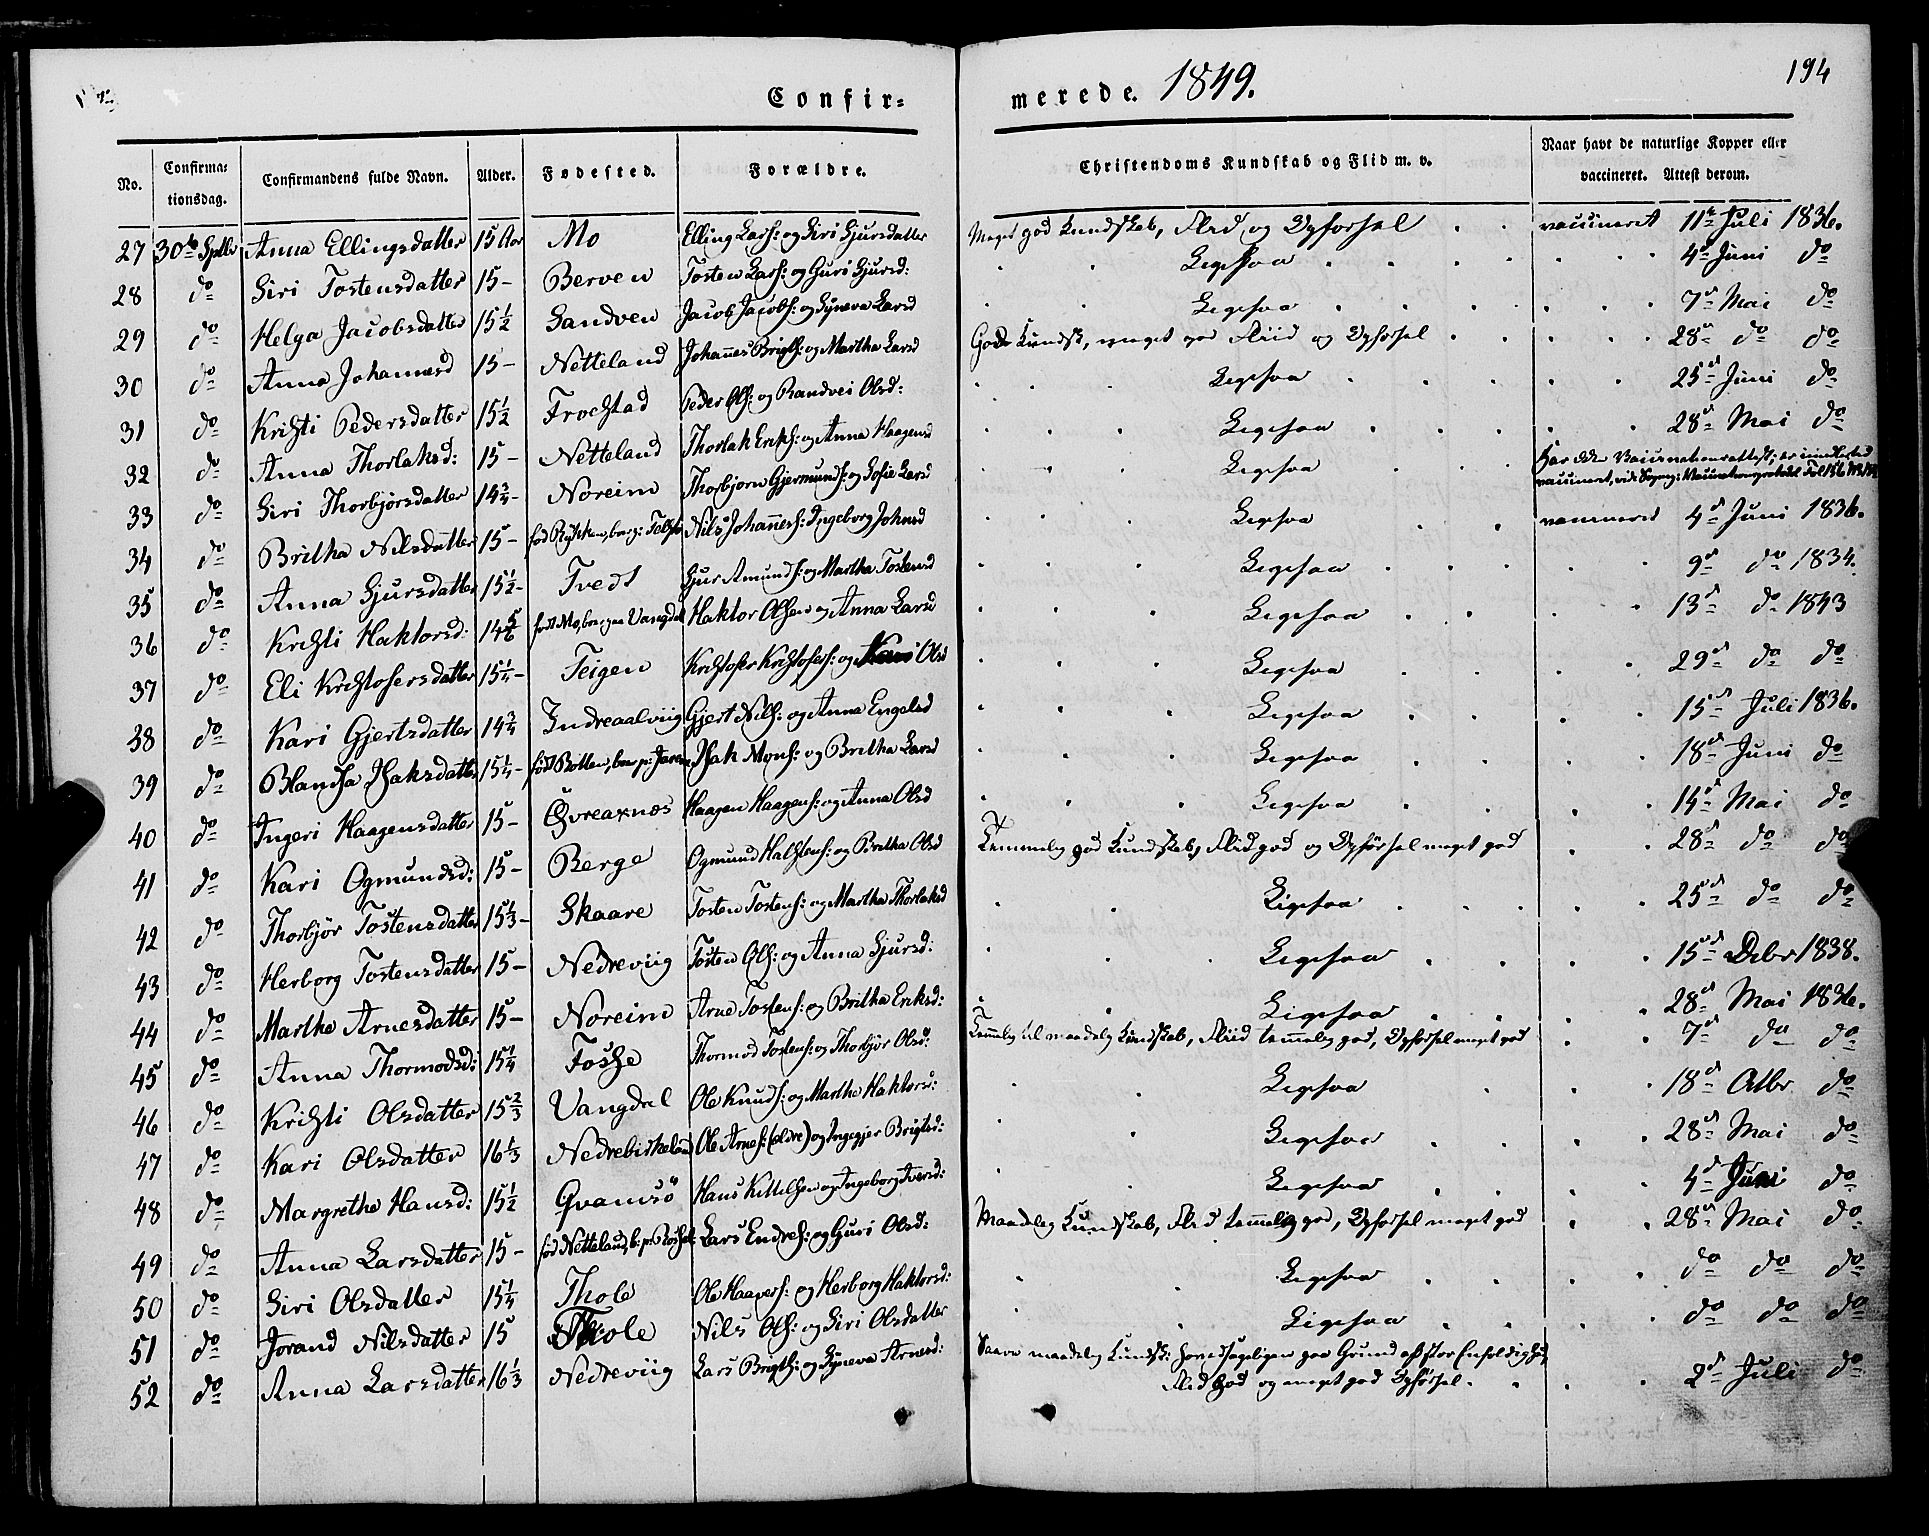 Confir-
merede. 1849.
194
No.
Confirma-
tionsdag.
Confirmandens fulde Navn.
Alder.
Fødested.
Forældre.
Christendoms Kundskab og Flid m. v.
Naar havt de naturlige Kopper eller
vaccineret. Attest derom.
27 30te Sptbr Anna Ellingsdatter 15 Aar Mo Elling Lars: og Siri Sjursdatter Meget god Kundskab, Flid og Opførsel vaccineret 11te Juli 1836.
28 do Siri Tostensdatter 15 - Berven Tosten Lars: og Guri Sjursd: Ligesaa 4de Juni do
29 do Helga Jacobsdatter 15½ Sandven Jacob Jacobs: og Syneva Larsd Ligesaa 7de Mai do
30 do Anna Johannesd 15 - Netteland Johannes Brigts: og Martha Larsd God Kundsk, meget god Fliid og Opførsel 28de do do
31 do Kristi Pedersdatter 15½ Frostad Peder Ols: og Randvei Olsd: Ligesaa 25de Juni do
32 do Anna Thorlaksd: 15 - Netteland Thorlak Eriks: og Anna Haagensd Ligesaa 28de Mai do
33 do Siri Thorbjørsdatter 14¾ - Noreim Thorbjørn Gjermunds: og Sofie Larsd Ligesaa Har ikke Vaccinationsattest; er imidlertid
vaccineret, vid:
34 do Britha Nilsdatter 15 - Nils Johannes: Ingeborg Johnsd Ligesaa vaccineret 4de Juni 1836.
35 do Anna Sjursdatter 15½ - Tvedt Sjur Amunds: og Martha Tostensd Ligesaa 9de do 1834.
36 do Kristi Haktorsd: 14 født Mo, Vangdal Haktor Olsen og Anna Larsd Ligesaa 13de do 1843
37 do Eli Kristofersdatter 15¼ - Teigen Kristofer Kristofers: og Kari Olsd Ligesaa 29de do do
38 do Kari Gjertsdatter 14¾ Indreaalviig Gjert Nils: og Anna Engelsd Ligesaa 15de Juli 1836.
39 do Isaksdatter 15¼ - født Botten, Isak Mons: og Britha Larsd Ligesaa 18de Juni do
40 do Ingeri Haagensdatter 15 - Øvreaxnæs Haagen Haagens: og Anna Olsd Ligesaa 14de Mai do
41 do Kari Ogmundsd: 15 - Berge Ogmund Halstens: og Britha Olsd Temmelig god Kundskab, Flid god og Opførsel meget god 28de do do
42 do Thorbjør Tostensdatter 15⅓ - Skaare Tosten Tostens: og Martha Thorlaksd Ligesaa 25de do do
43 do Herborg Tostensdatter 15 - Nedreviig Tosten Ols: og Anna Sjursd: Ligesaa 15de Debr 1838.
44 do Martha Arnesdatter 15 - Noreim Arne Tostens: og Britha Eriksd: Ligesaa 28de Mai 1836.
45 do Anna Thormodsd: 15¼ Fosse Thormod Tostens: og Thorbjør Olsd: Temmelig til maadelig Kundskab, Fliid temmelig god, Opførsel meget god 7de do do
46 do Kristi Olsdatter 15⅔ Vangdal Ole Knuds: og Marthe Haktors: Ligesaa 18de Octbr do
47 do Kari Olsdatter 16⅓ Nedrebirkeland Ole Arnes: (eldre) og Ingegjer Brigtsd: Ligesaa 28de Mai do
48 do Margrethe Hansd: 15½ Qvamsö Hans Kittilsen og Ingeborg Iversd: Ligesaa 4de Juni do
49 do Anna Larsdatter 15 - født Netteland, Lars Endres: og Guri Olsd: Maadelig Kundskab, Flid temmelig god, Opførsel meget god 28de Mai do
50 do Siri Olsdatter 15¼ Thole Ole Haagens: og Herborg Haktorsd: Ligesaa do do do
51 do Jorand Nilsdatter 15 Thole Nils Ols: og Siri Olsdatter Ligesaa do do do
52 do Anna Larsdatter 16⅓ Nedreviig Lars Brigts: og Syneva Arnesd: Saare maadelig Kundsk: hovedsageligen paa Grund af stor Enfoldighed,
Flid god og meget god Opførsel. 2de Juli do